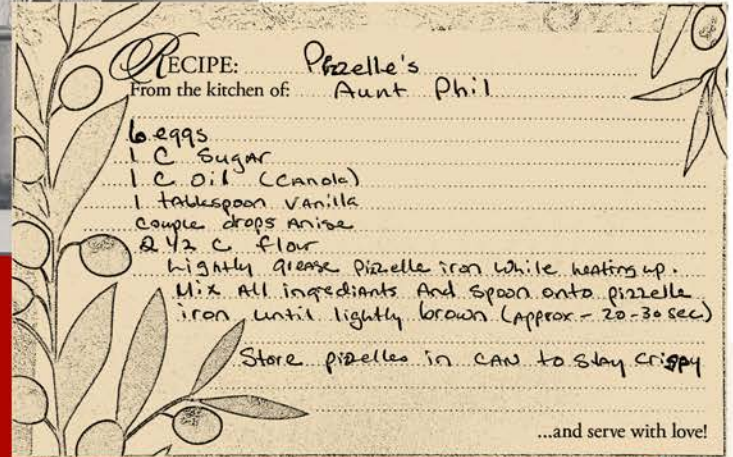 RECIPE: Pizzelle's
From the kitchen of: Aunt Phil
6 eggs
1 C Sugar
1 C Oil (Canola)
1 tablespoon Vanilla
Couple drops Anise
2 1/2 C. flour
Lightly grease pizzelle iron while heating up.
Mix All ingrediants And spoon onto pizzelle
iron until lightly brown (Approx - 20-30 sec)
Store pizelles in CAN to stay crispy
...and serve with love!